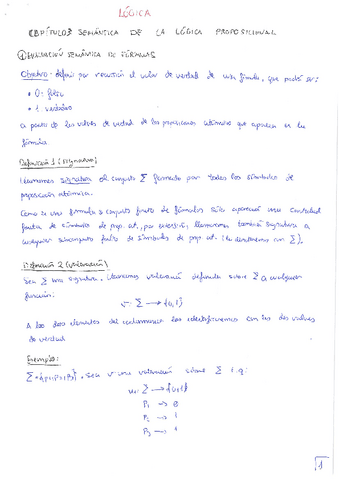 LÓGICA
CAPÍTULO 3 SEMÁNTICA DE LA LÓGICA PROPOSICIONAL
① EVALUACIÓN SEMÁNTICA DE FÓRMULAS
Objetivo: definir por recursión el valor de verdad de una fórmula, que podrá ser:
• 0: falso
• 1 verdadero
a partir de los valores de verdad de las proposiciones atómicas que aparecen en la
fórmula.
Definición 1 (signatura)
Llamamos signatura al conjunto Σ formado por todos los símbolos de
proposición atómica.
Como en una fórmula o conjunto finito de fórmulas sólo aparece una cantidad
finita de símbolos de prop. at., por extensión, llamaremos también signatura a
cualquier subconjunto finito de símbolos de prop. at. (lo denotaremos con Σ).
Definición 2 (valoración)
Sea Σ una signatura. Llamamos valoración definida sobre Σ a cualquier
función:
v: Σ → {0,1}
A los dos elementos del codominio los identificaremos con los dos valores
de verdad
Ejemplo:
Σ = {p₁, p₂, p₃}. Sea v una valoración sobre Σ t.q.
v: Σ → {0,1}
P₁ → 0
P₂ → 1
P₃ → 1
1